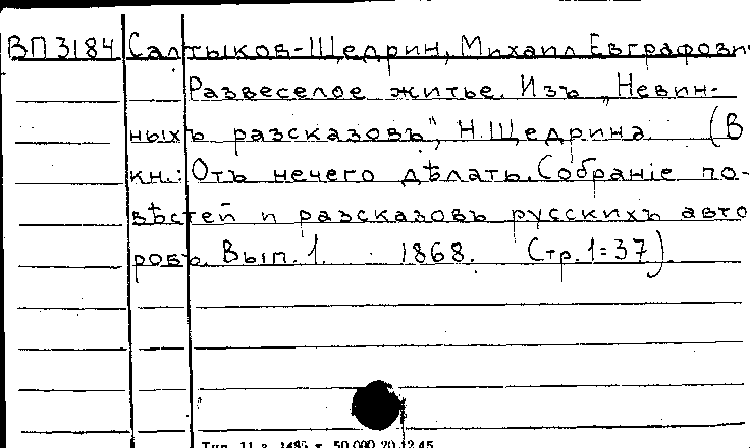 ВП3184 Салтыков-Щедрин, Михаил Евграфови
Развеселое житье. Изъ „Невин-
ныхъ разсказовъ", Н.Щедрина (В
кн.: Отъ нечего дѣлать. Собранiе по-
вѣстей и разсказовъ русскихъ авто
ровъ. Вып. 1. 1868. Стр. 1=37).
Тип. 11 з. 1485 т. 50.000 20.12.45